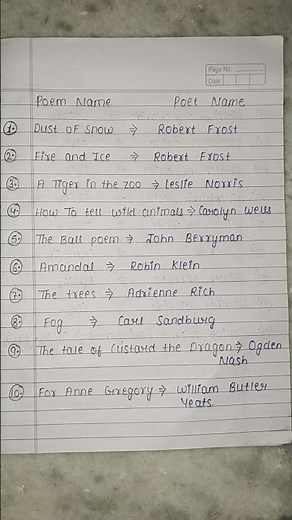 Page No.
Date
Poem Name Poet Name
1. Dust of Snow → Robert Frost
2. Fire and Ice → Robert Frost
3. A Tiger in the zoo → Leslie Norris
4. How To tell wild animals → Carolyn Wells
5. The Ball poem → John Berryman
6. Amanda! → Robin Klein
7. The trees → Adrienne Rich
8. Fog → Carl Sandburg
9. The tale of Custard the Dragon → Ogden
Nash
10. For Anne Gregory → William Butler
Yeats